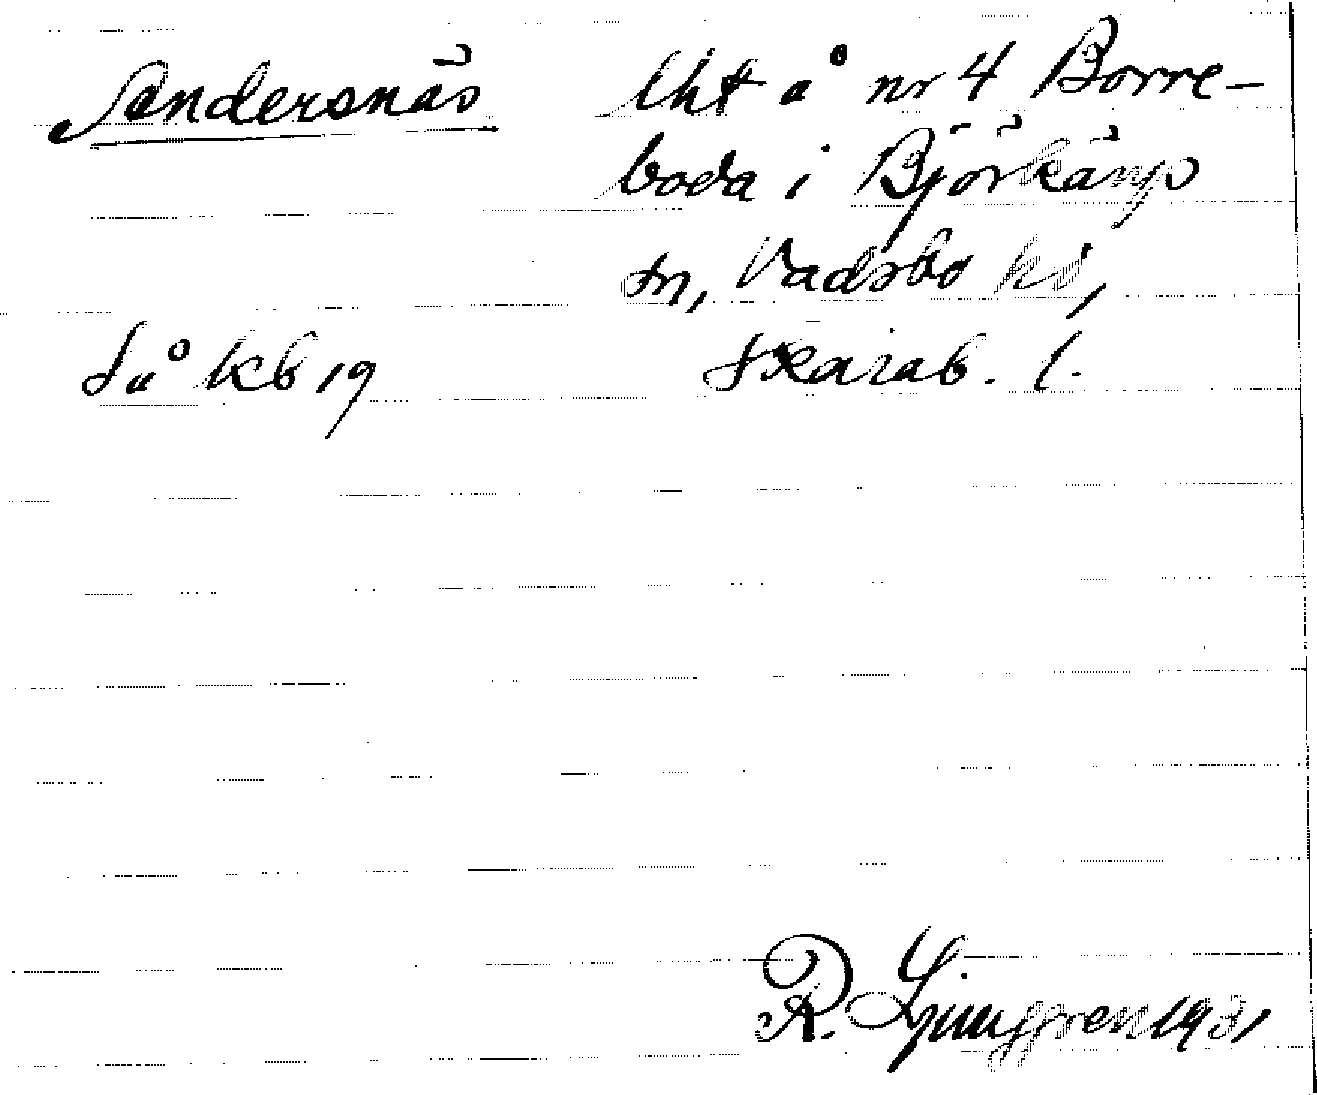 Andersnäs
lht å nr 4 Borre-
boda i Björkäng
sn, Vadsbo hd,
Skarab. l.
Så kb 19
R. Ljunggren 1931